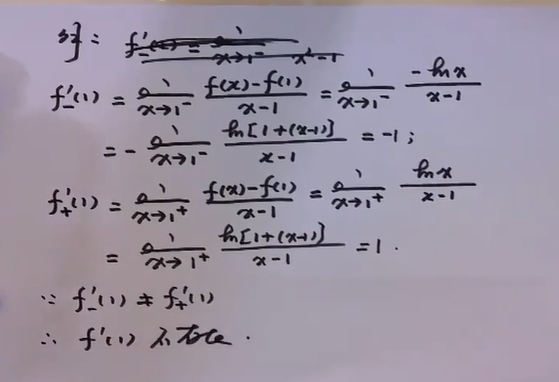 解: f₋'(1) = lim x→1⁻ x²-1
f₋'(1) = lim x→1⁻ (f(x)-f(1))/(x-1) = lim x→1⁻ (-ln x)/(x-1)
= - lim x→1⁻ ln[1+(x-1)]/(x-1) = -1;
f₊'(1) = lim x→1⁺ (f(x)-f(1))/(x-1) = lim x→1⁺ (ln x)/(x-1)
= lim x→1⁺ ln[1+(x-1)]/(x-1) = 1.
∵ f₋'(1) ≠ f₊'(1)
∴ f'(1) 不存在.